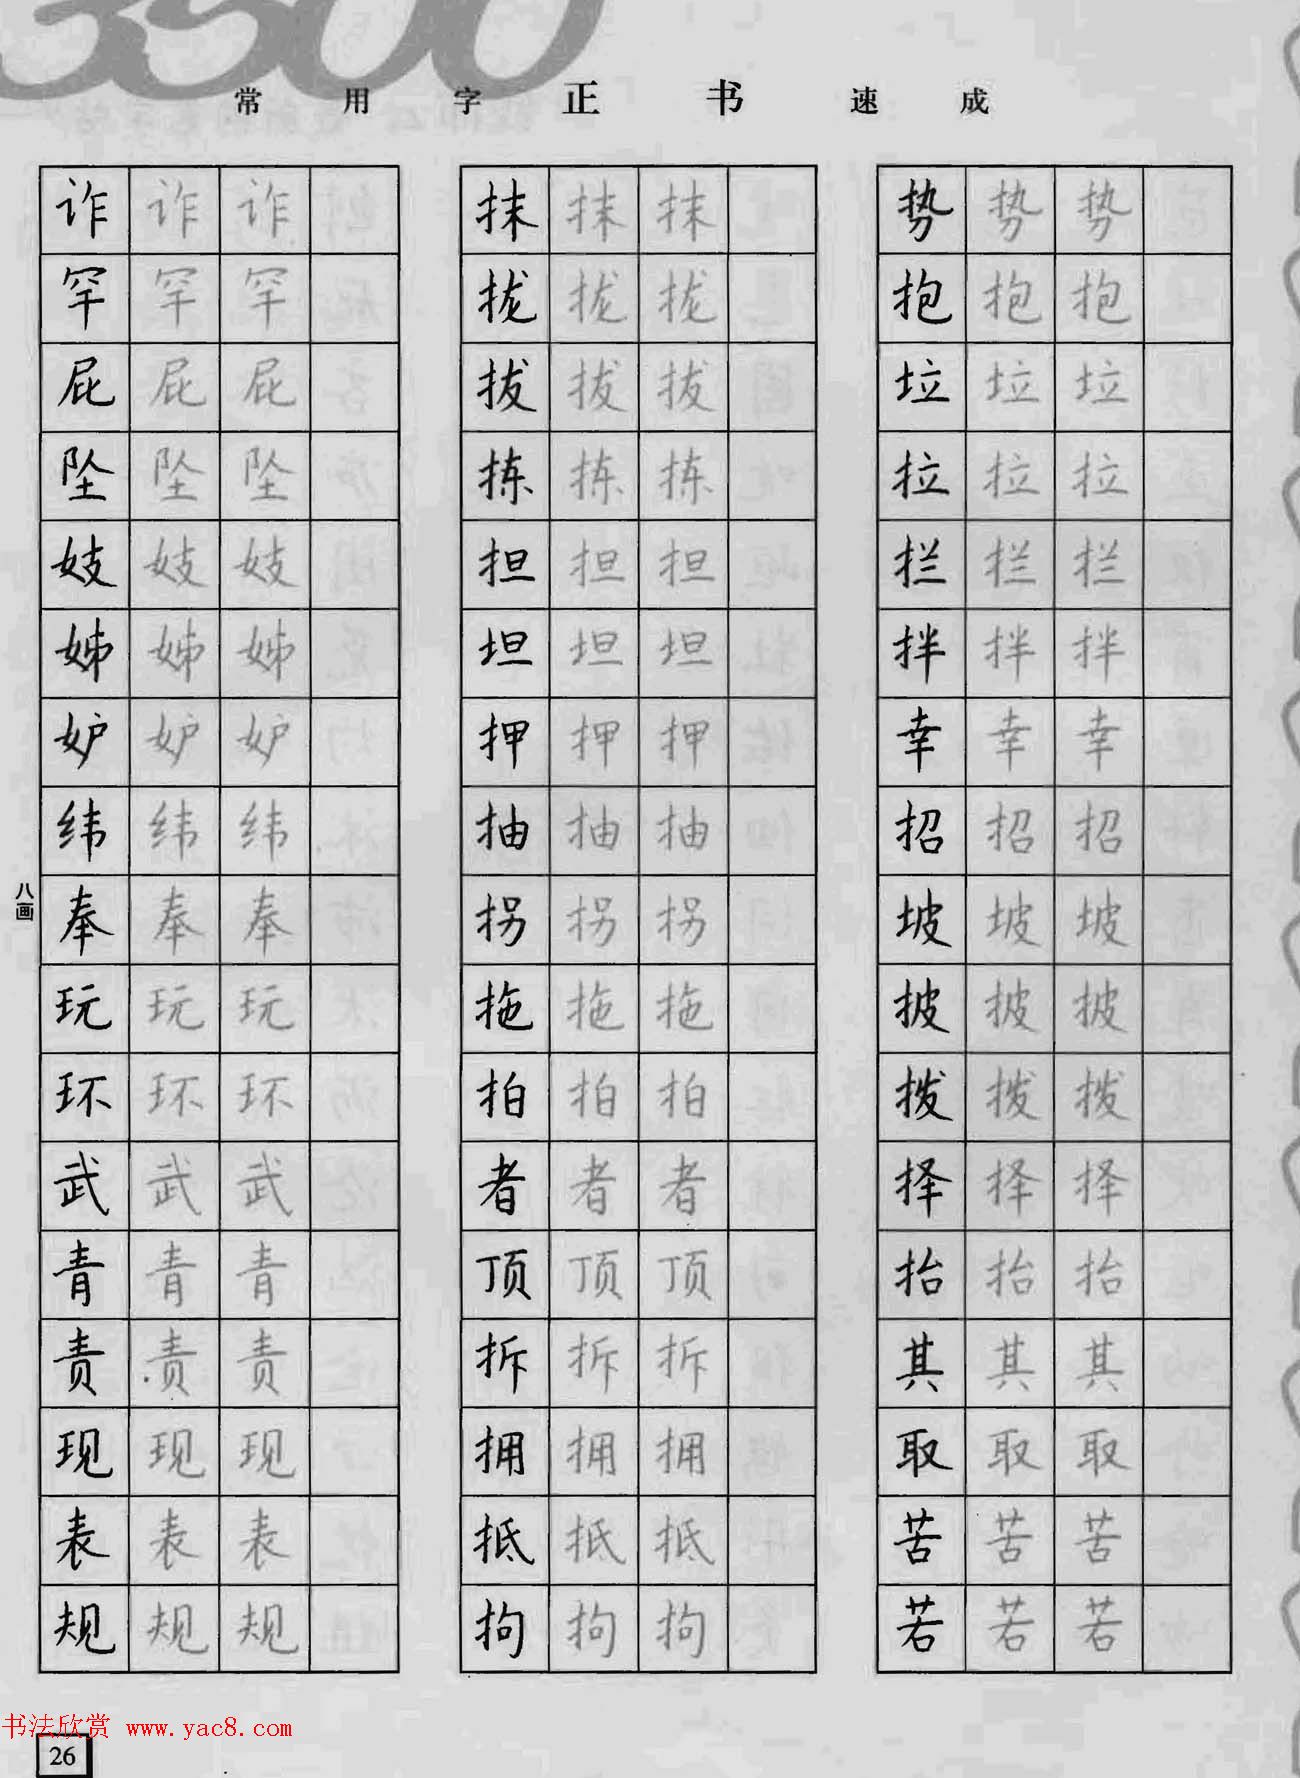 3500
常用字正书速成
诈 诈 诈 抹 抹 抹 势 势 势
罕 罕 罕 拢 拢 拢 抱 抱 抱
屁 屁 屁 拔 拔 拔 垃 垃 垃
坠 坠 坠 拣 拣 拣 拉 拉 拉
妓 妓 妓 担 担 担 拦 拦 拦
姊 姊 姊 坦 坦 坦 拌 拌 拌
妒 妒 妒 押 押 押 幸 幸 幸
纬 纬 纬 抽 抽 抽 招 招 招
八画
奉 奉 奉 拐 拐 拐 坡 坡 坡
玩 玩 玩 拖 拖 拖 披 披 披
环 环 环 拍 拍 拍 拨 拨 拨
武 武 武 者 者 者 择 择 择
青 青 青 顶 顶 顶 抬 抬 抬
责 责 责 拆 拆 拆 其 其 其
现 现 现 拥 拥 拥 取 取 取
表 表 表 抵 抵 抵 苦 苦 苦
规 规 规 拘 拘 拘 若 若 若
书法欣赏 www.yac8.com
26